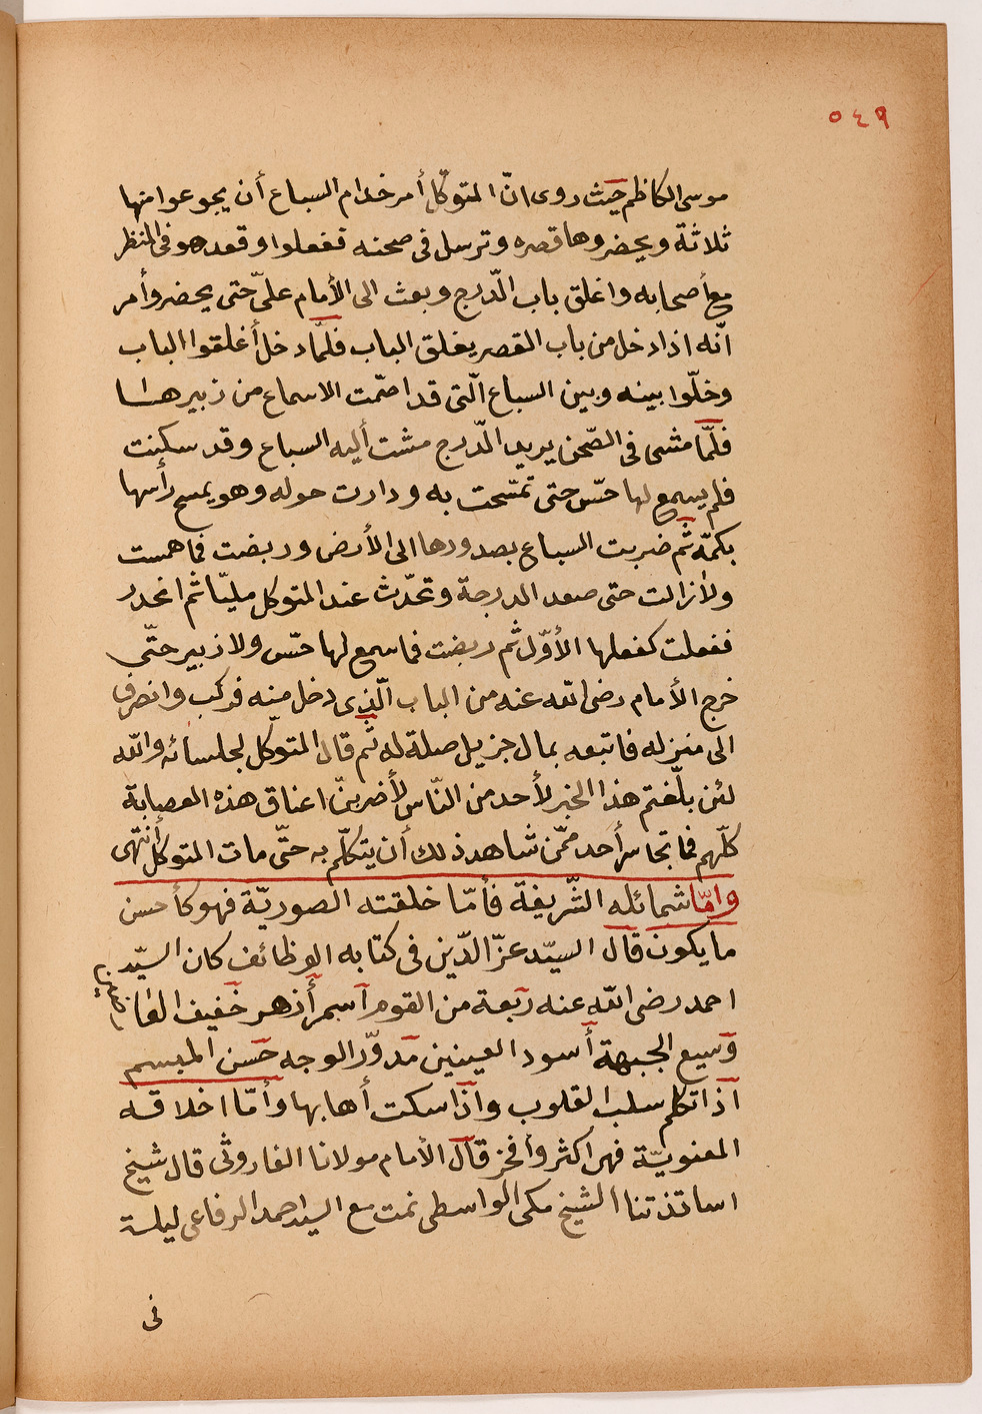 ٥٤٩
موسى الكاظم حيث روى انّ المتوكّل أمر خدام السباع أن يجوعوا منها
ثلاثة ويحضروها قصره وترسل فى صحنه ففعلوا وقعد هو فى المنظر
مع أصحابه واغلق باب الدّرج وبعث الى الأمام علىّ حتى يحضر وأمر
انّه اذا دخل من باب القصر يغلق الباب فلمّا دخل أغلقوا الباب
وخلّوا بينه وبين السباع الّتى قد اصمّت الاسماع من زبيرها
فلمّا مشى فى الصّحن يريد الدّرج مشت أليه السباع وقد سكنت
فلم يسمع لها حسّ حتى تمسّحت به ودارت حوله وهو يمسح رأسها
بكمّه ثم ضربت السباع بصدورها الى الأرض وربضت فما همست
ولا زالت حتى صعد الدرجة وتحّدث عند المتوكل مليّا ثم انحدر
ففعلت كفعلها الأوّل ثم ربضت فما سمع لها حسّ ولا زبير حتّى
خرج الأمام رضى الله عنه من الباب الّذى دخل منه فركب وانصرف
الى منزله فاتبعه بمال جزيل صلة له ثم قال المتوكّل لجلسائه والله
لئن بلّغتم هذا الخبر لأحد من النّاس لأضربنّ اعناق هذه العصابة
كلّهم فما تجاسر أحد ممّن شاهد ذلك أن يتكلّم به حتّى مات المتوكل أنتهى
وامّا شمائله الشّريفة فأمّا خلقته الصوريّة فهو كأحسن
ما يكون قال السيّد عزّ الدّين فى كتابه الوظائف كان السيّد
احمد رضى الله عنه ربعة من القوم أسمر أزهر خفيف العا
وسيع الجبهة أسود العينين مدوّر الوجه حسن المبسم
اذا تكلم سلب القلوب واذا سكت أهابها وأمّا اخلاقه
المعنويّة فهى اكثر وأفخر قال الأمام مولانا الفاروثى قال شيخ
اساتذتنا الشيخ مكى الواسطى نمت مع السيد احمد الرفاعى ليلة
فى